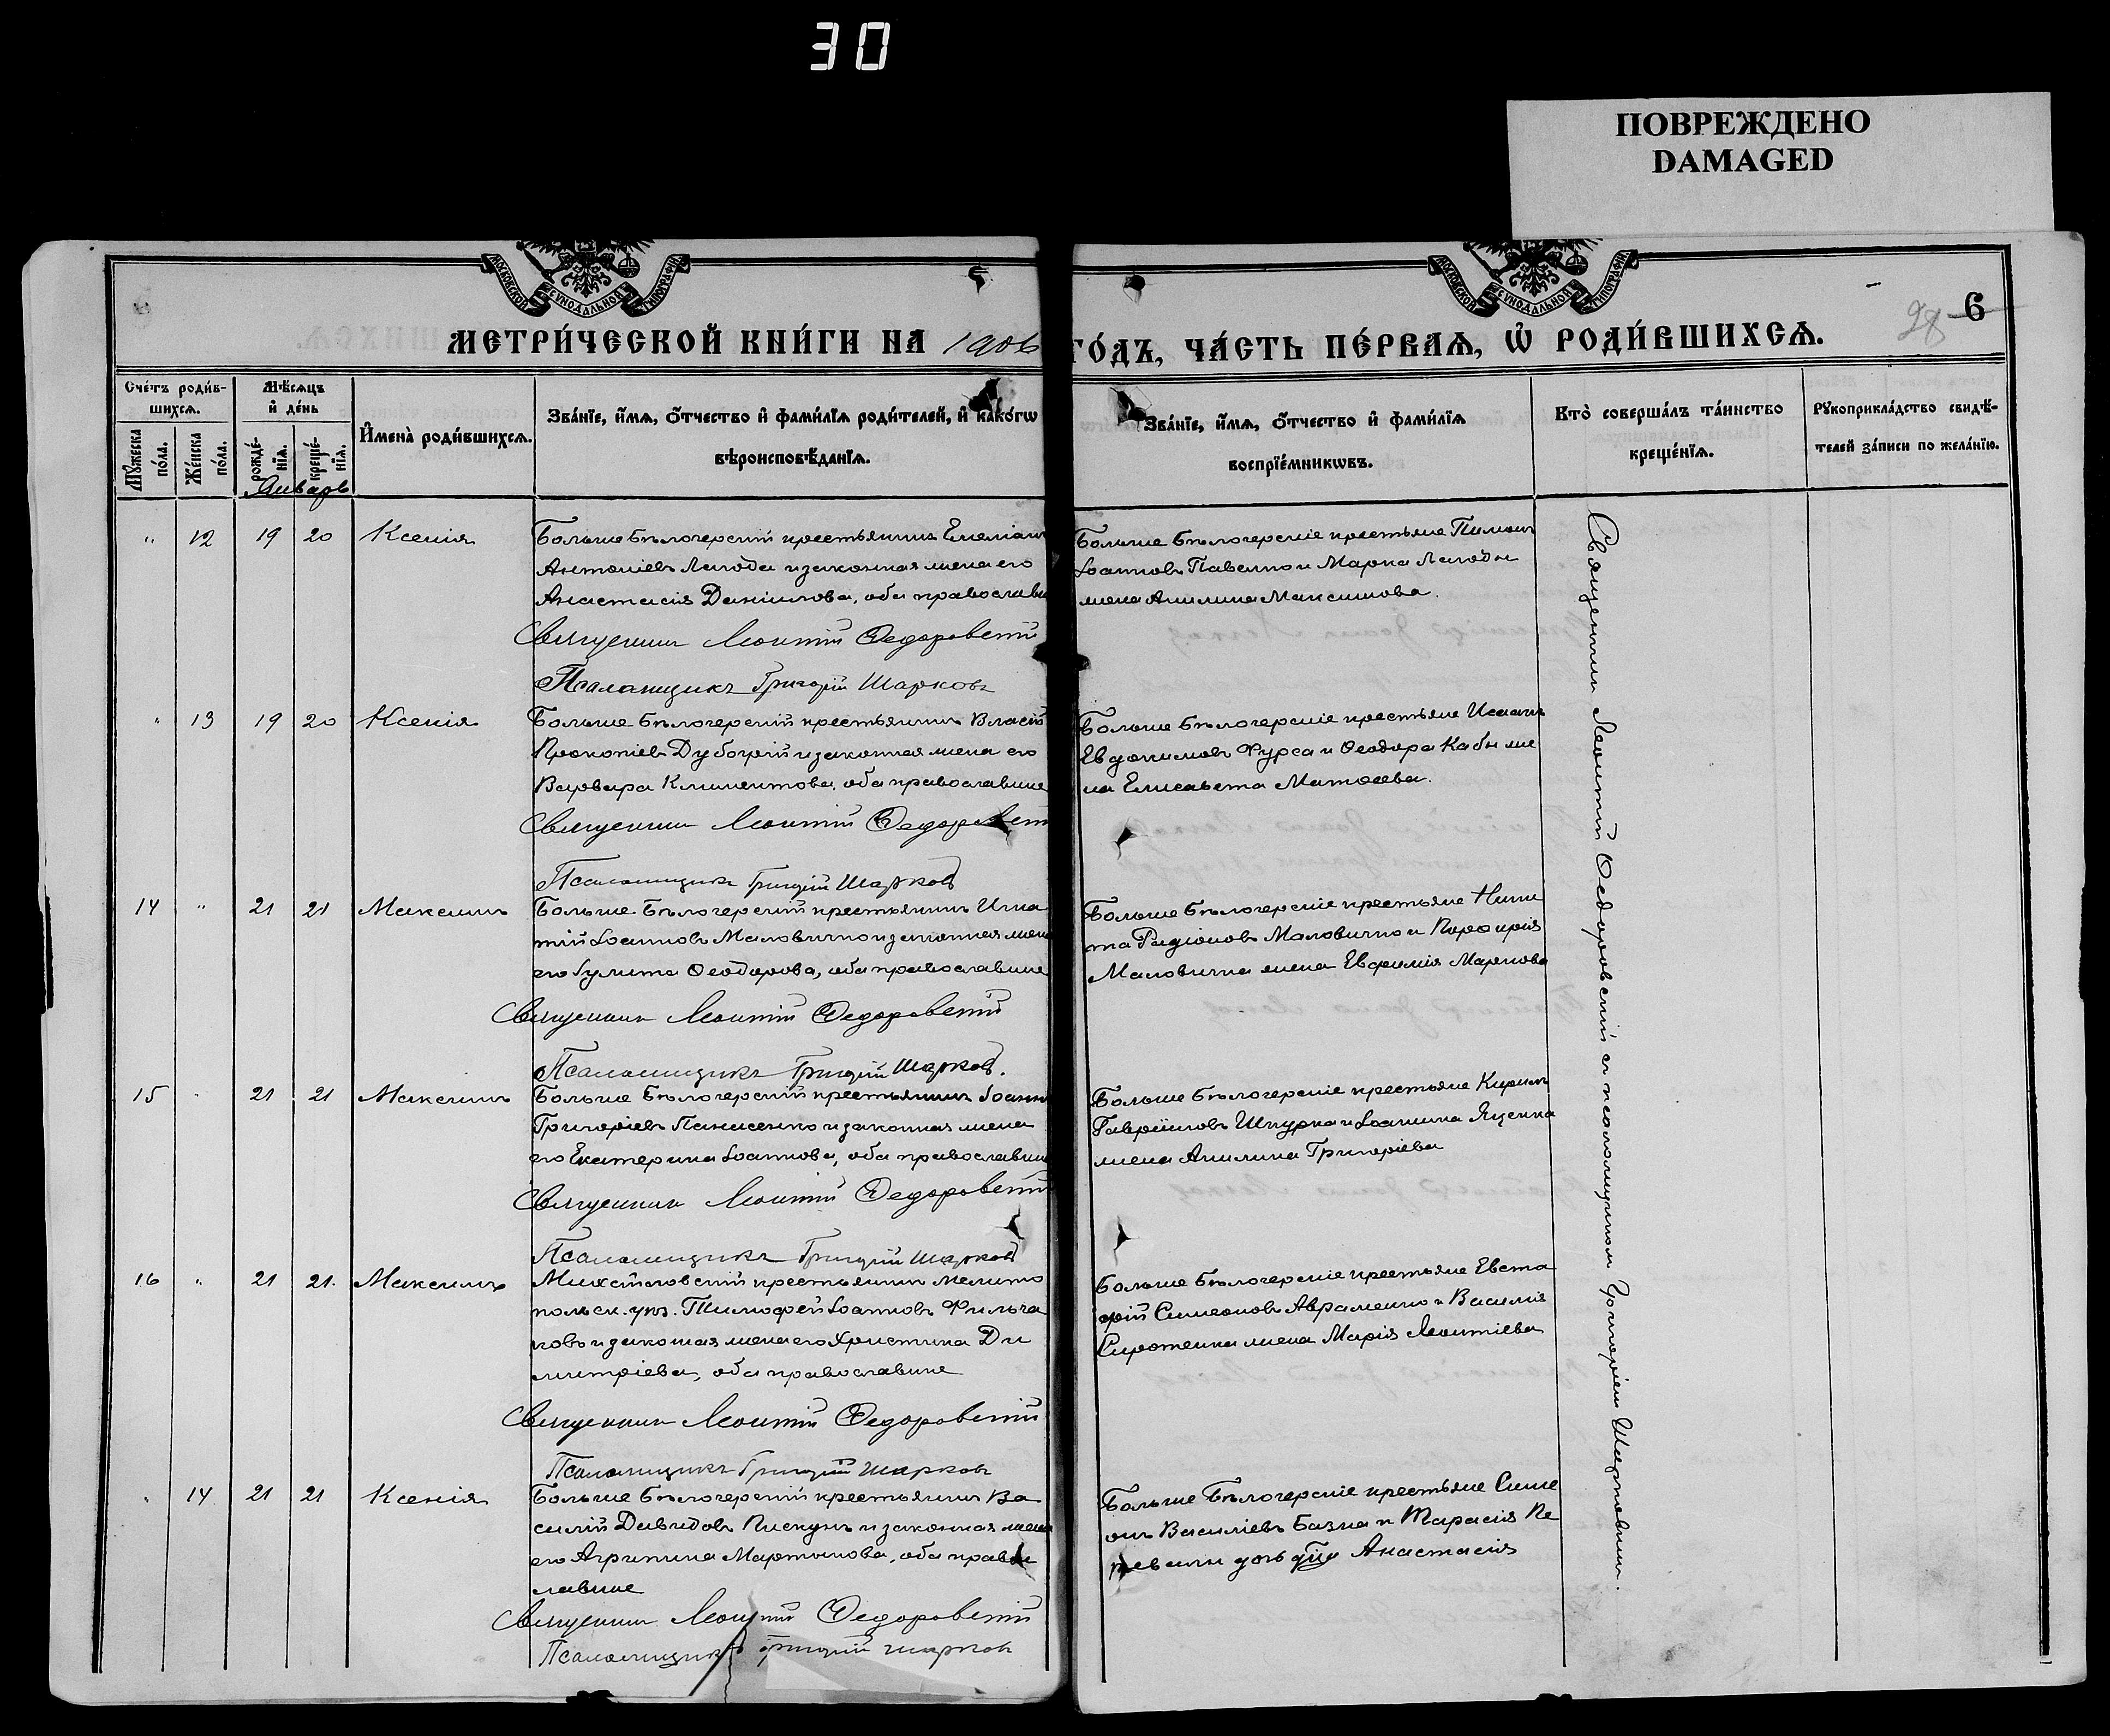 30
ПОВРЕЖДЕНО
DAMAGED
МОСКОВСКОЙ СУНОДАЛЬНОЙ ТИПОГРАФІИ
МОСКОВСКОЙ СУНОДАЛЬНОЙ ТИПОГРАФІИ
МЕТРИ́ЧЕСКОЙ КНИ́ГИ НА 1906
ГО́ДЪ, ЧА́СТЬ ПЕ́РВАѦ, Ѡ҆ РОДИ́ВШИХСѦ.
28 6
Сче́тъ роди́в-
шихсѧ.
Мꙋ́жеска по́ла.
Же́нска по́ла.
Мѣ́сѧцъ
и҆ де́нь
рожде́-нїѧ.
креще́-нїѧ.
Январь
И҆мена̀ роди́вшихсѧ.
Зва́нїе, и҆́мѧ, ѻ҆́тчество и҆ фами́лїѧ роди́телей, и҆ како́гѡ
вѣроисповѣ́данїѧ.
Зва́нїе, и҆́мѧ, ѻ҆́тчество и҆ фами́лїѧ
воспрїе́мникѡвъ.
Кто̀ соверша́лъ та́инство
креще́нїѧ.
Рꙋкоприкла́дство свидѣ́-
телей за́писи по жела́нїю.
" 12 19 20 Ксенія
Больше Бѣлозерскій крестьянинъ Емеліанъ
Антоніевъ Лагода и законная жена его
Анастасія Даніилова, оба православн
Священникъ Леонтій Федоровскій
Псаломщикъ Григорій Шарковъ
Больше Бѣлозерскіе крестьяне Пименъ
Іоанновъ Павленко и Марка Лагоды
жена Акилина Максимова.
" 13 19 20 Ксенія
Больше Бѣлозерскій крестьянинъ Власій
Прокопіевъ Дубогрій и законная жена его
Варвара Климентова, оба православные
Священникъ Леонтій Федоровскій
Псаломщикъ Григорій Шарковъ
Больше Бѣлозерскіе крестьяне
Евдокимовъ Фурса и Ѳеодора Кабы же
на Елисавета Матѳеева.
14 " 21 21 Максимъ
Больше Бѣлозерскій крестьянинъ Игна
тій Іоанновъ Маловичко и законная жена
его Іулита Ѳеодорова, оба православные
Священникъ Леонтій Федоровскій
Псаломщикъ Григорій Шарковъ.
Больше Бѣлозерскіе крестьяне Ники
та Родіоновъ Маловичко и Порфирія
Маловичка жена Евфимія Маркова
15 " 21 21 Максимъ
Больше Бѣлозерскій крестьянинъ Іоаннъ
Григоріевъ Панасенко и законная жена
его Екатерина Іоаннова, оба православные
Священникъ Леонтій Федоровскій
Псаломщикъ Григорій Шарковъ
Больше Бѣлозерскіе крестьяне Кирилъ
Гавріиловъ Шкурка и Іоанна Яценка
жена Акилина Григоріева
16 " 21 21. Максимъ
крестьянинъ Мелито
польск. уѣз. Тимоѳей Іоанновъ Фильча
ковъ и законная жена его Христина Ди
митріева, оба православные
Священникъ Леонтій Федоровскій
Псаломщикъ Григорій Шарковъ
Больше Бѣлозерскіе крестьяне Евста
фій Симеоновъ Авраменко и Василія
Сиротенка жена Марія Леонтіева
" 14 21 21 Ксенія
Больше Бѣлозерскій крестьянинъ Ва
силій Давидовъ Пискунъ и законная жена
его Агрипина Мартынова, оба право
славные
Священникъ Леонтій Федоровскій
Псаломщикъ Григорій Шарковъ
Больше Бѣлозерскіе крестьяне Симе
онъ Василіевъ Базна и Тарасія
Анастасія
Священникъ Леонтій Ѳедоровскій съ псаломщикомъ Григоріемъ